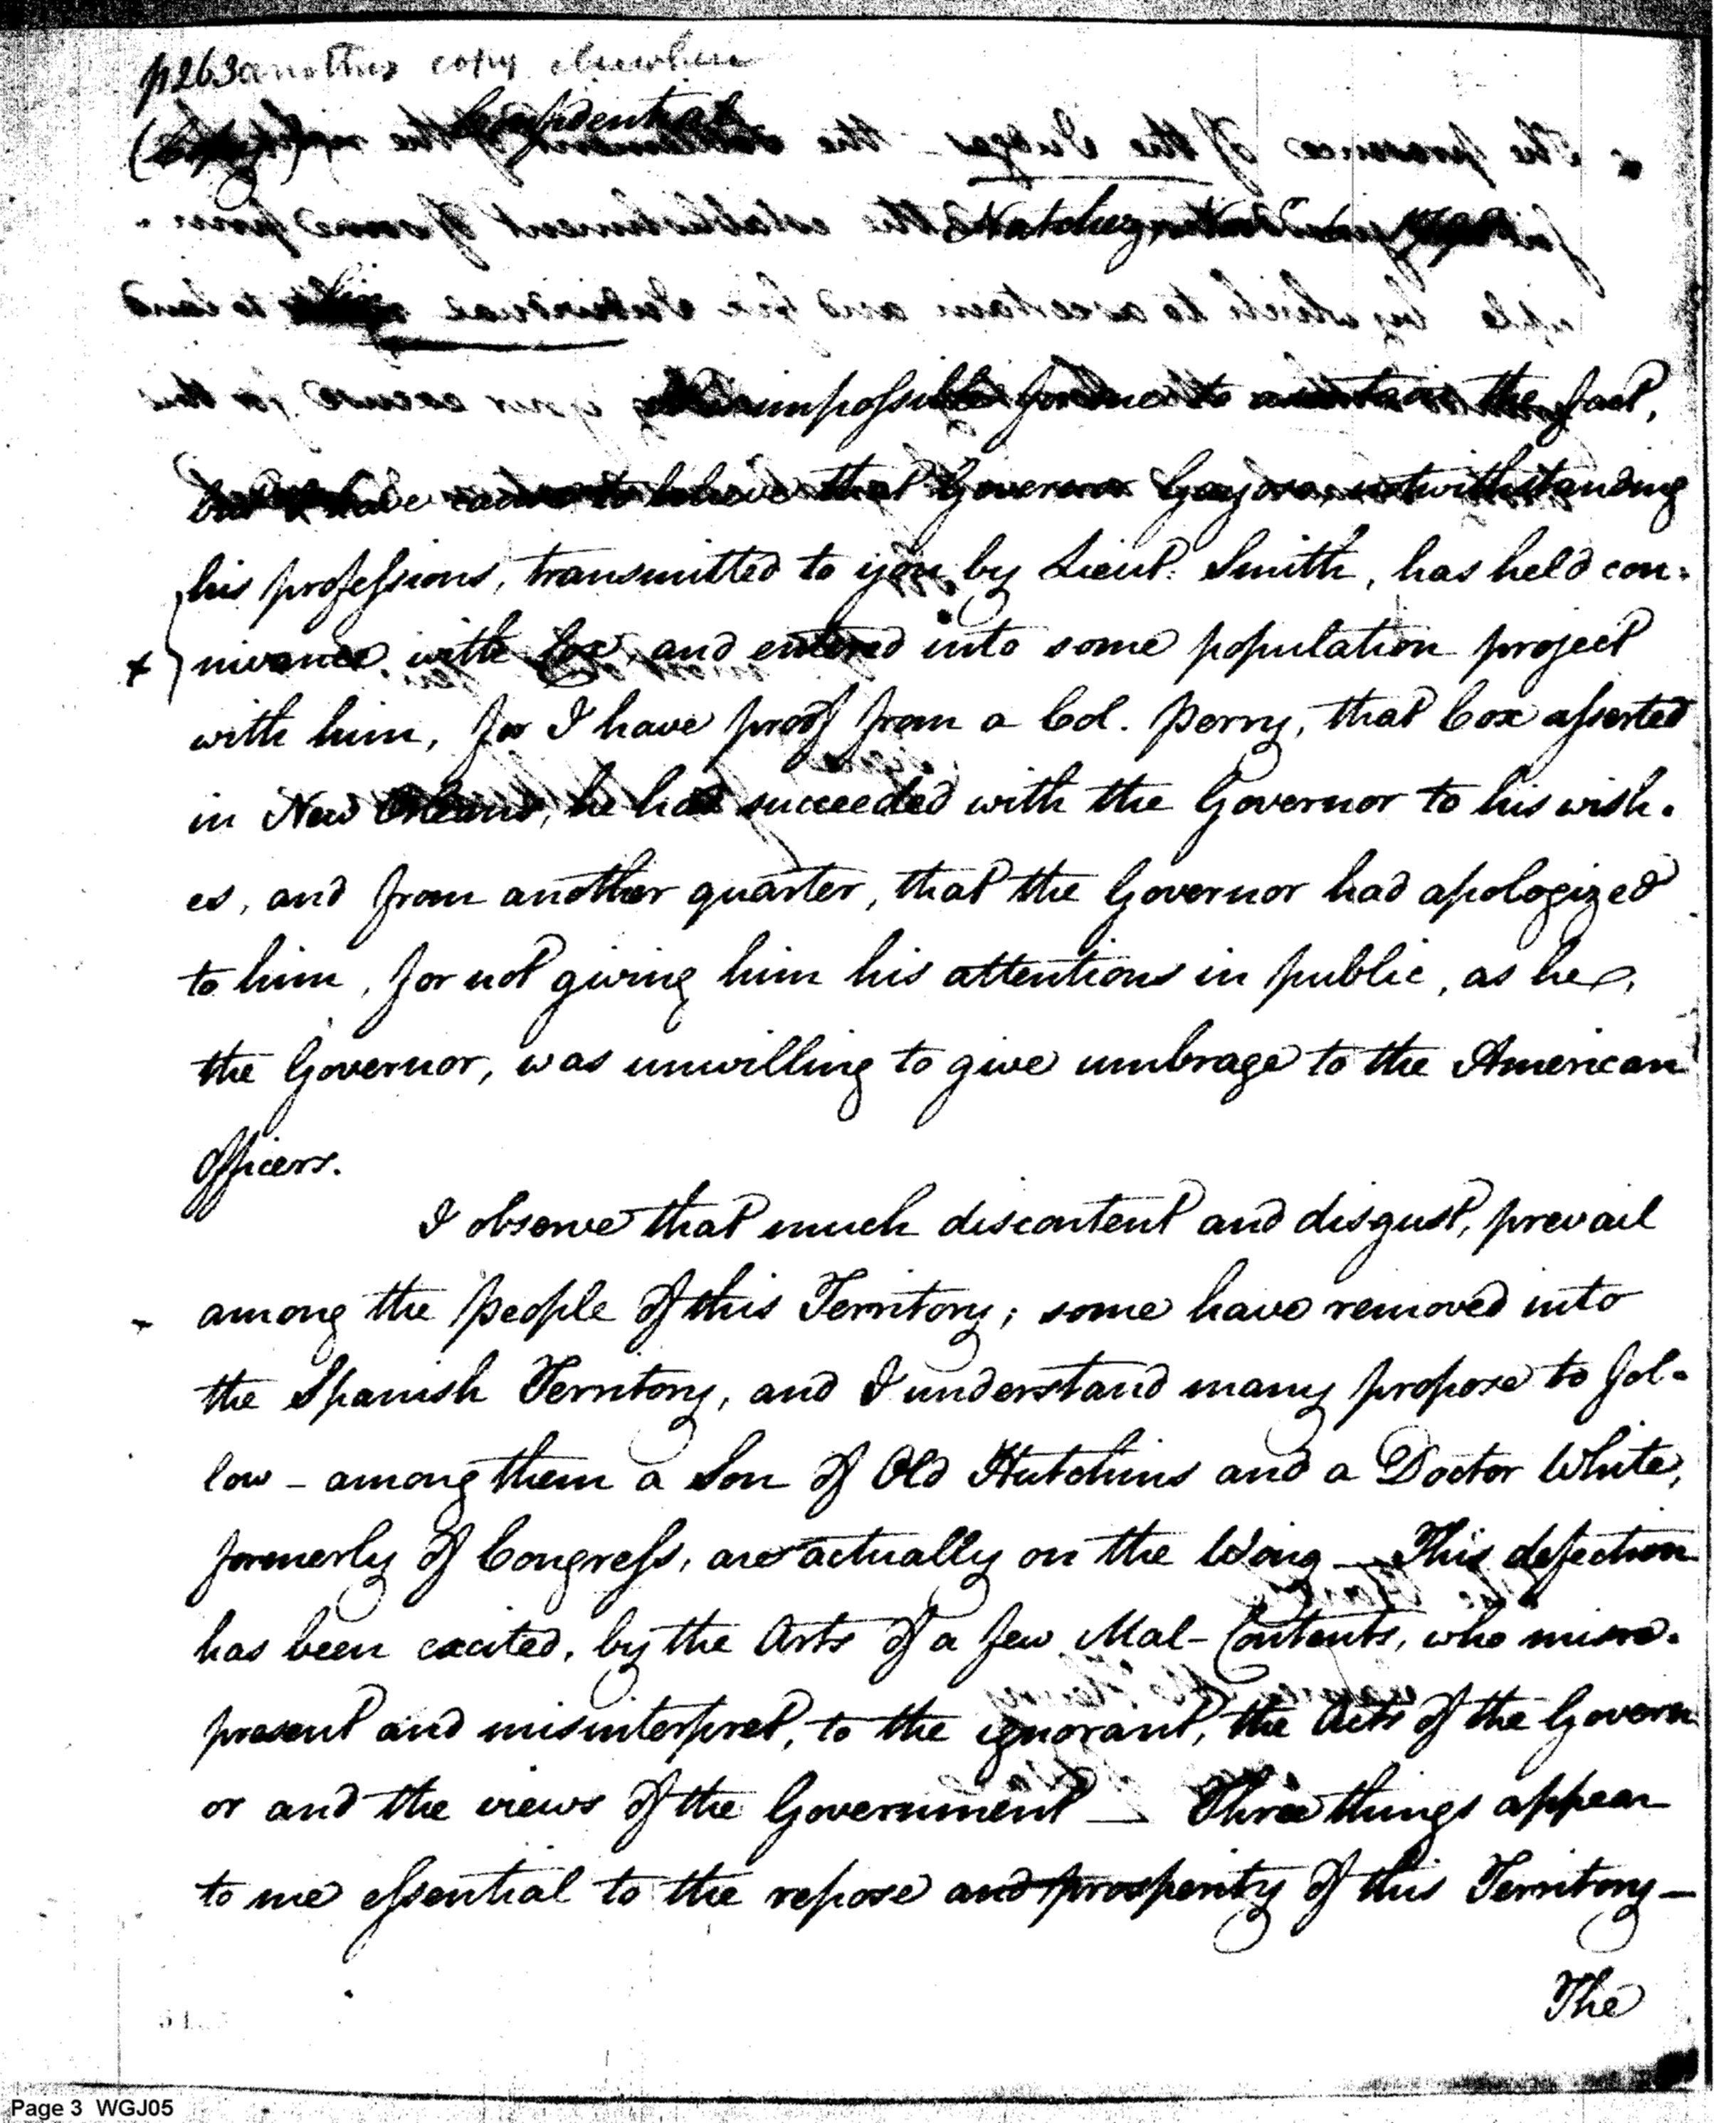 p263 another copy elsewhere
Confidential
(Copy)
Natchez,
impossible for me to ascertain the fact,
but I have cause to believe that Governor Gayoso, notwithstanding
his professions, transmitted to you by Lieut. Smith, has held con-
+ nivance with Cox, and entered into some population project
with him, for I have proof from a Col. Perry, that Cox asserted
in New Orleans, he had succeeded with the Governor to his wish-
es, and from another quarter, that the Governor had apologized
to him, for not giving him his attentions in public, as he,
the Governor, was unwilling to give umbrage to the American
officers.
I observe that much discontent and disgust, prevail
among the People of this Territory; some have removed into
the Spanish Territory, and I understand many propose to fol-
low – among them a Son of Old Hutchins and a Doctor White,
formerly of Congress, are actually on the Wing – This defection
has been excited, by the Arts of a few Mal-Contents, who misre-
present and misinterpret, to the ignorant, the Acts of the Govern
or and the views of the Government – Three things appear
to me essential to the repose and prosperity of this Territory –
The
Page 3 WGJ05